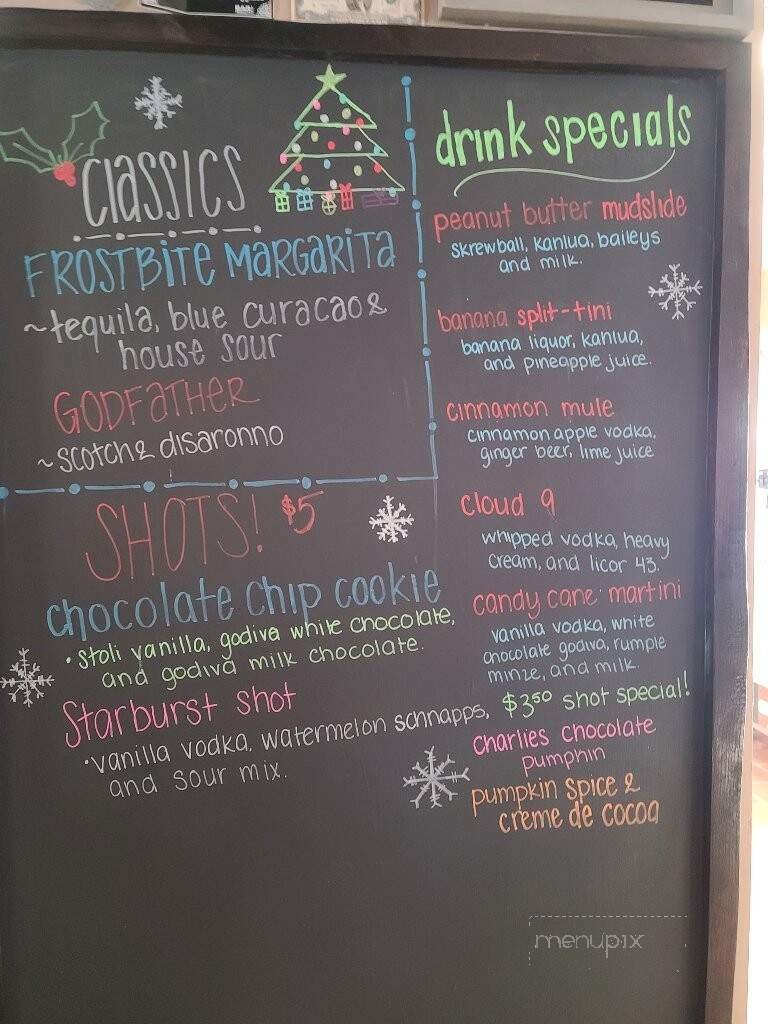 CLASSICS
FROSTBITE MARGARITA
~tequila, blue curacao &
house sour
GODFATHER
~SCOTCH & DISARONNO
SHOTS! $5
chocolate chip cookie
• Stoli vanilla, godiva white chocolate,
and godiva milk chocolate.
Starburst shot
• vanilla vodka, watermelon schnapps,
and sour mix.
drink specials
peanut butter mudslide
skrewball, kahlua, baileys
and milk.
banana split-tini
banana liquor, kahlua,
and pineapple juice.
cinnamon mule
cinnamon apple vodka,
ginger beer, lime juice
cloud 9
whipped vodka, heavy
cream, and licor 43.
candy cane martini
vanilla vodka, white
chocolate godiva, rumple
minze, and milk.
$3.50 shot special!
Charlies chocolate
pumphin
pumpkin spice &
creme de cocoa
menupix